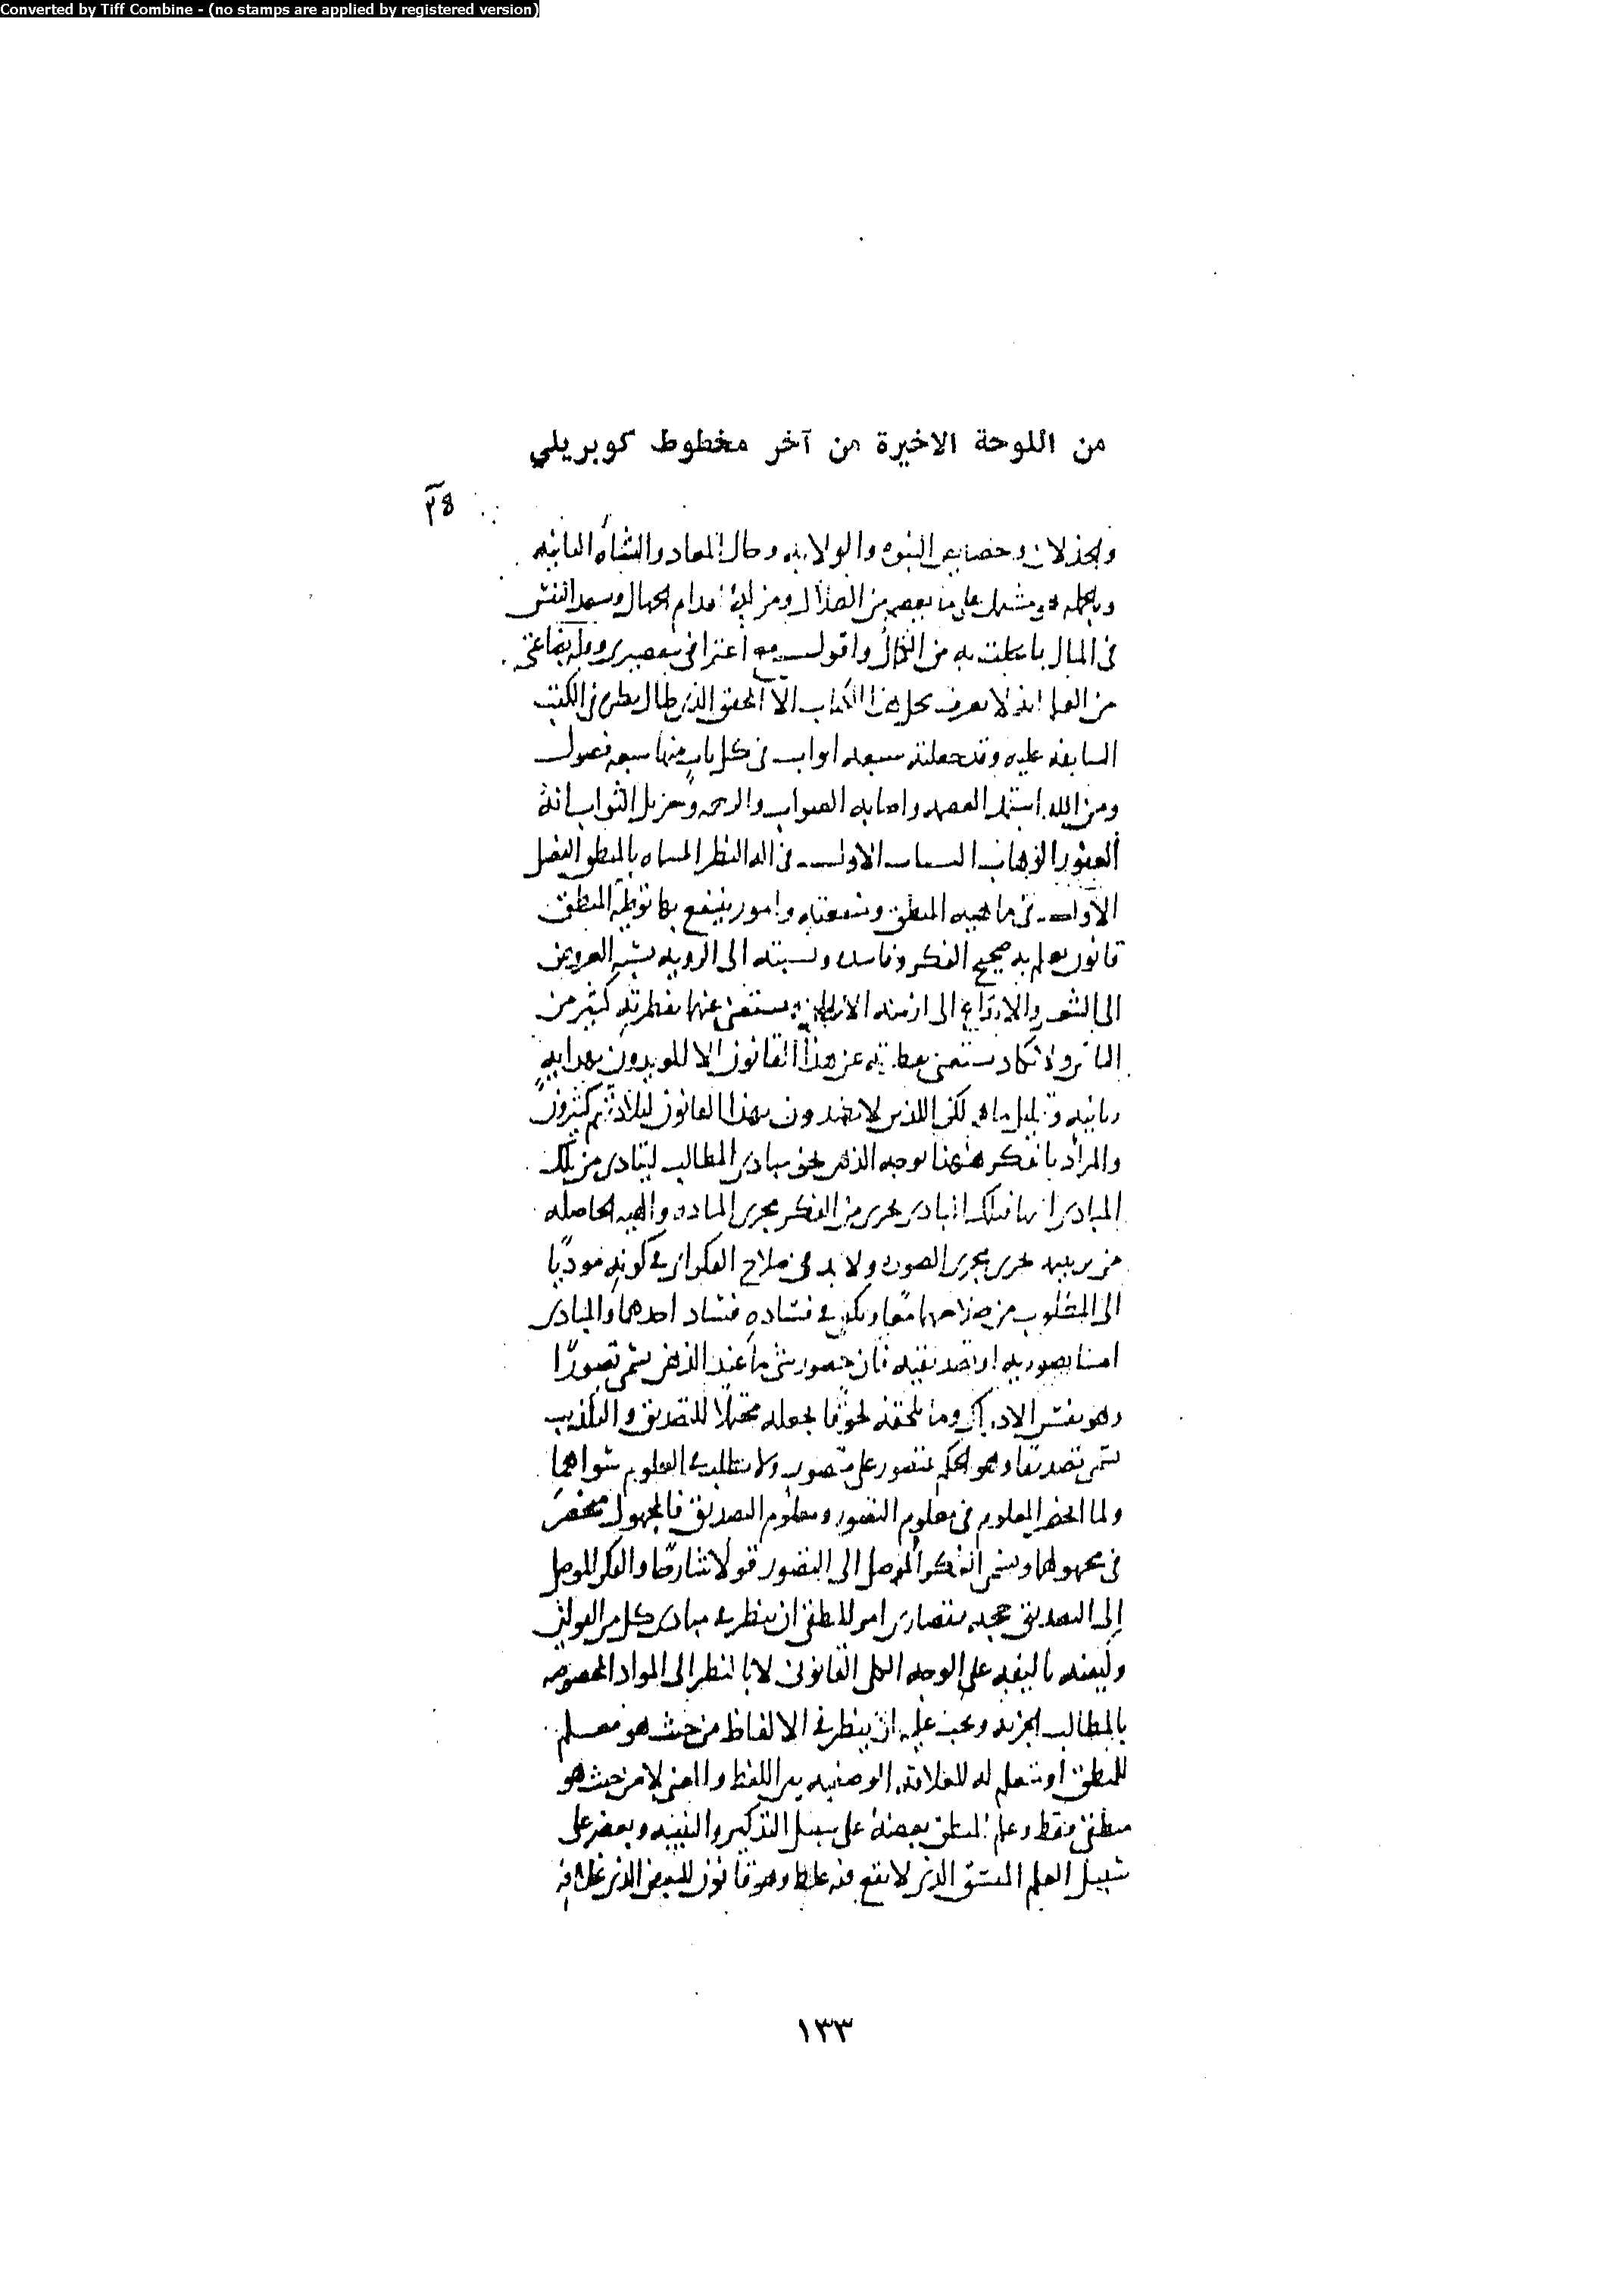 Converted by Tiff Combine - (no stamps are applied by registered version)
من اللوحة الاخيرة من آخر مخطوط كوبريلي
والخذلان وخصايص النبوه والولايه وحال المعاد والنشأه الثانيه
وبالجمله فهو مشتمل على ما يعصم من الضلال ومزلة اقدام الجهال ويسعد النفس
فى المال بما تحلت به من الكمال واقول مع اعترافى بتقصيرى وقله بضاعتى
من العلم انه لا يعرف محل هذا الكتاب الا المحقق الذى طال نظره فى الكتب
السابقه عليه وقد جعلته سبعه ابواب فى كل باب منها سبعه فصول
ومن الله استمد العصمه واصابه الصواب والرحمه وجزيل الثواب انه
الغفور الوهاب الباب الاول فى اله النظر المسماه بالمنطق الفصل
الاول فى ماهيه المنطق ومنفعته وامور ينتفع بها توطئه المنطق
قانون يعلم به صحيح الفكر وفاسده ونسبته الى الرويه نسبه العروض
الى الشعر والايقاع الى ازمنه الالحان ويستغنى عنهما بفطرته كثير من
الناس ولا يكاد يستغنى بفطرته عن هذا القانون الا المويدون بهدايه
ربانيه وقليل ماهم لكن الذين لا يقتدون بهذا القانون لبلادتهم كثيرون
والمراد بالفكر هاهنا توجه الذهن نحو مبادى المطالب ليتادى من تلك
المبادى اليها فتلك المبادى تجرى من الفكر مجرى الماده والهيه الحاصله
من ترتيبه تجرى مجرى الصوره ولا بد فى صلاح الفكر اى فى كونه موديا
الى المطلوب من صلاحهما معا ويكفى فى فساده فساد احدهما والمبادى
اما تصوريه او تصديقيه فان حضور شى ما عند الذهن يسمى تصورا
وهو نفس الادراك وما يلحقه لحوقا يجعله محتملا للتصديق والتكذيب
يسمى تصديقا وهو الحكم بمتصور على متصور ولا يطلب فى العلوم سواهما
ولما انحصر المعلوم فى معلوم التصور ومعلوم التصديق فالمجهول منحصر
فى مجهولهما ويسمى الفكر الموصل الى التصور قولا شارحا والفكر الموصل
الى التصديق حجه فقصارى امر المنطقى ان ينظر فى مبادى كل من القولين
وكيفيه تاليفه على الوجه الكلى القانونى لا بالنظر الى المواد المخصوصه
بالمطالب الجزئيه ويجب عليه ان ينظر فى الالفاظ من حيث هو معلم
للمنطق او متعلم له للعلاقه الوضعيه بين اللفظ والمعنى لا من حيث هو
منطقى فقط وعلم المنطق بعضه على سبيل التذكير والتنبيه وبعضه على
سبيل العلم المتسق الذى لا يقع فيه غلط وهو قانون للبعض الذى يغلط فيه
١٣٣